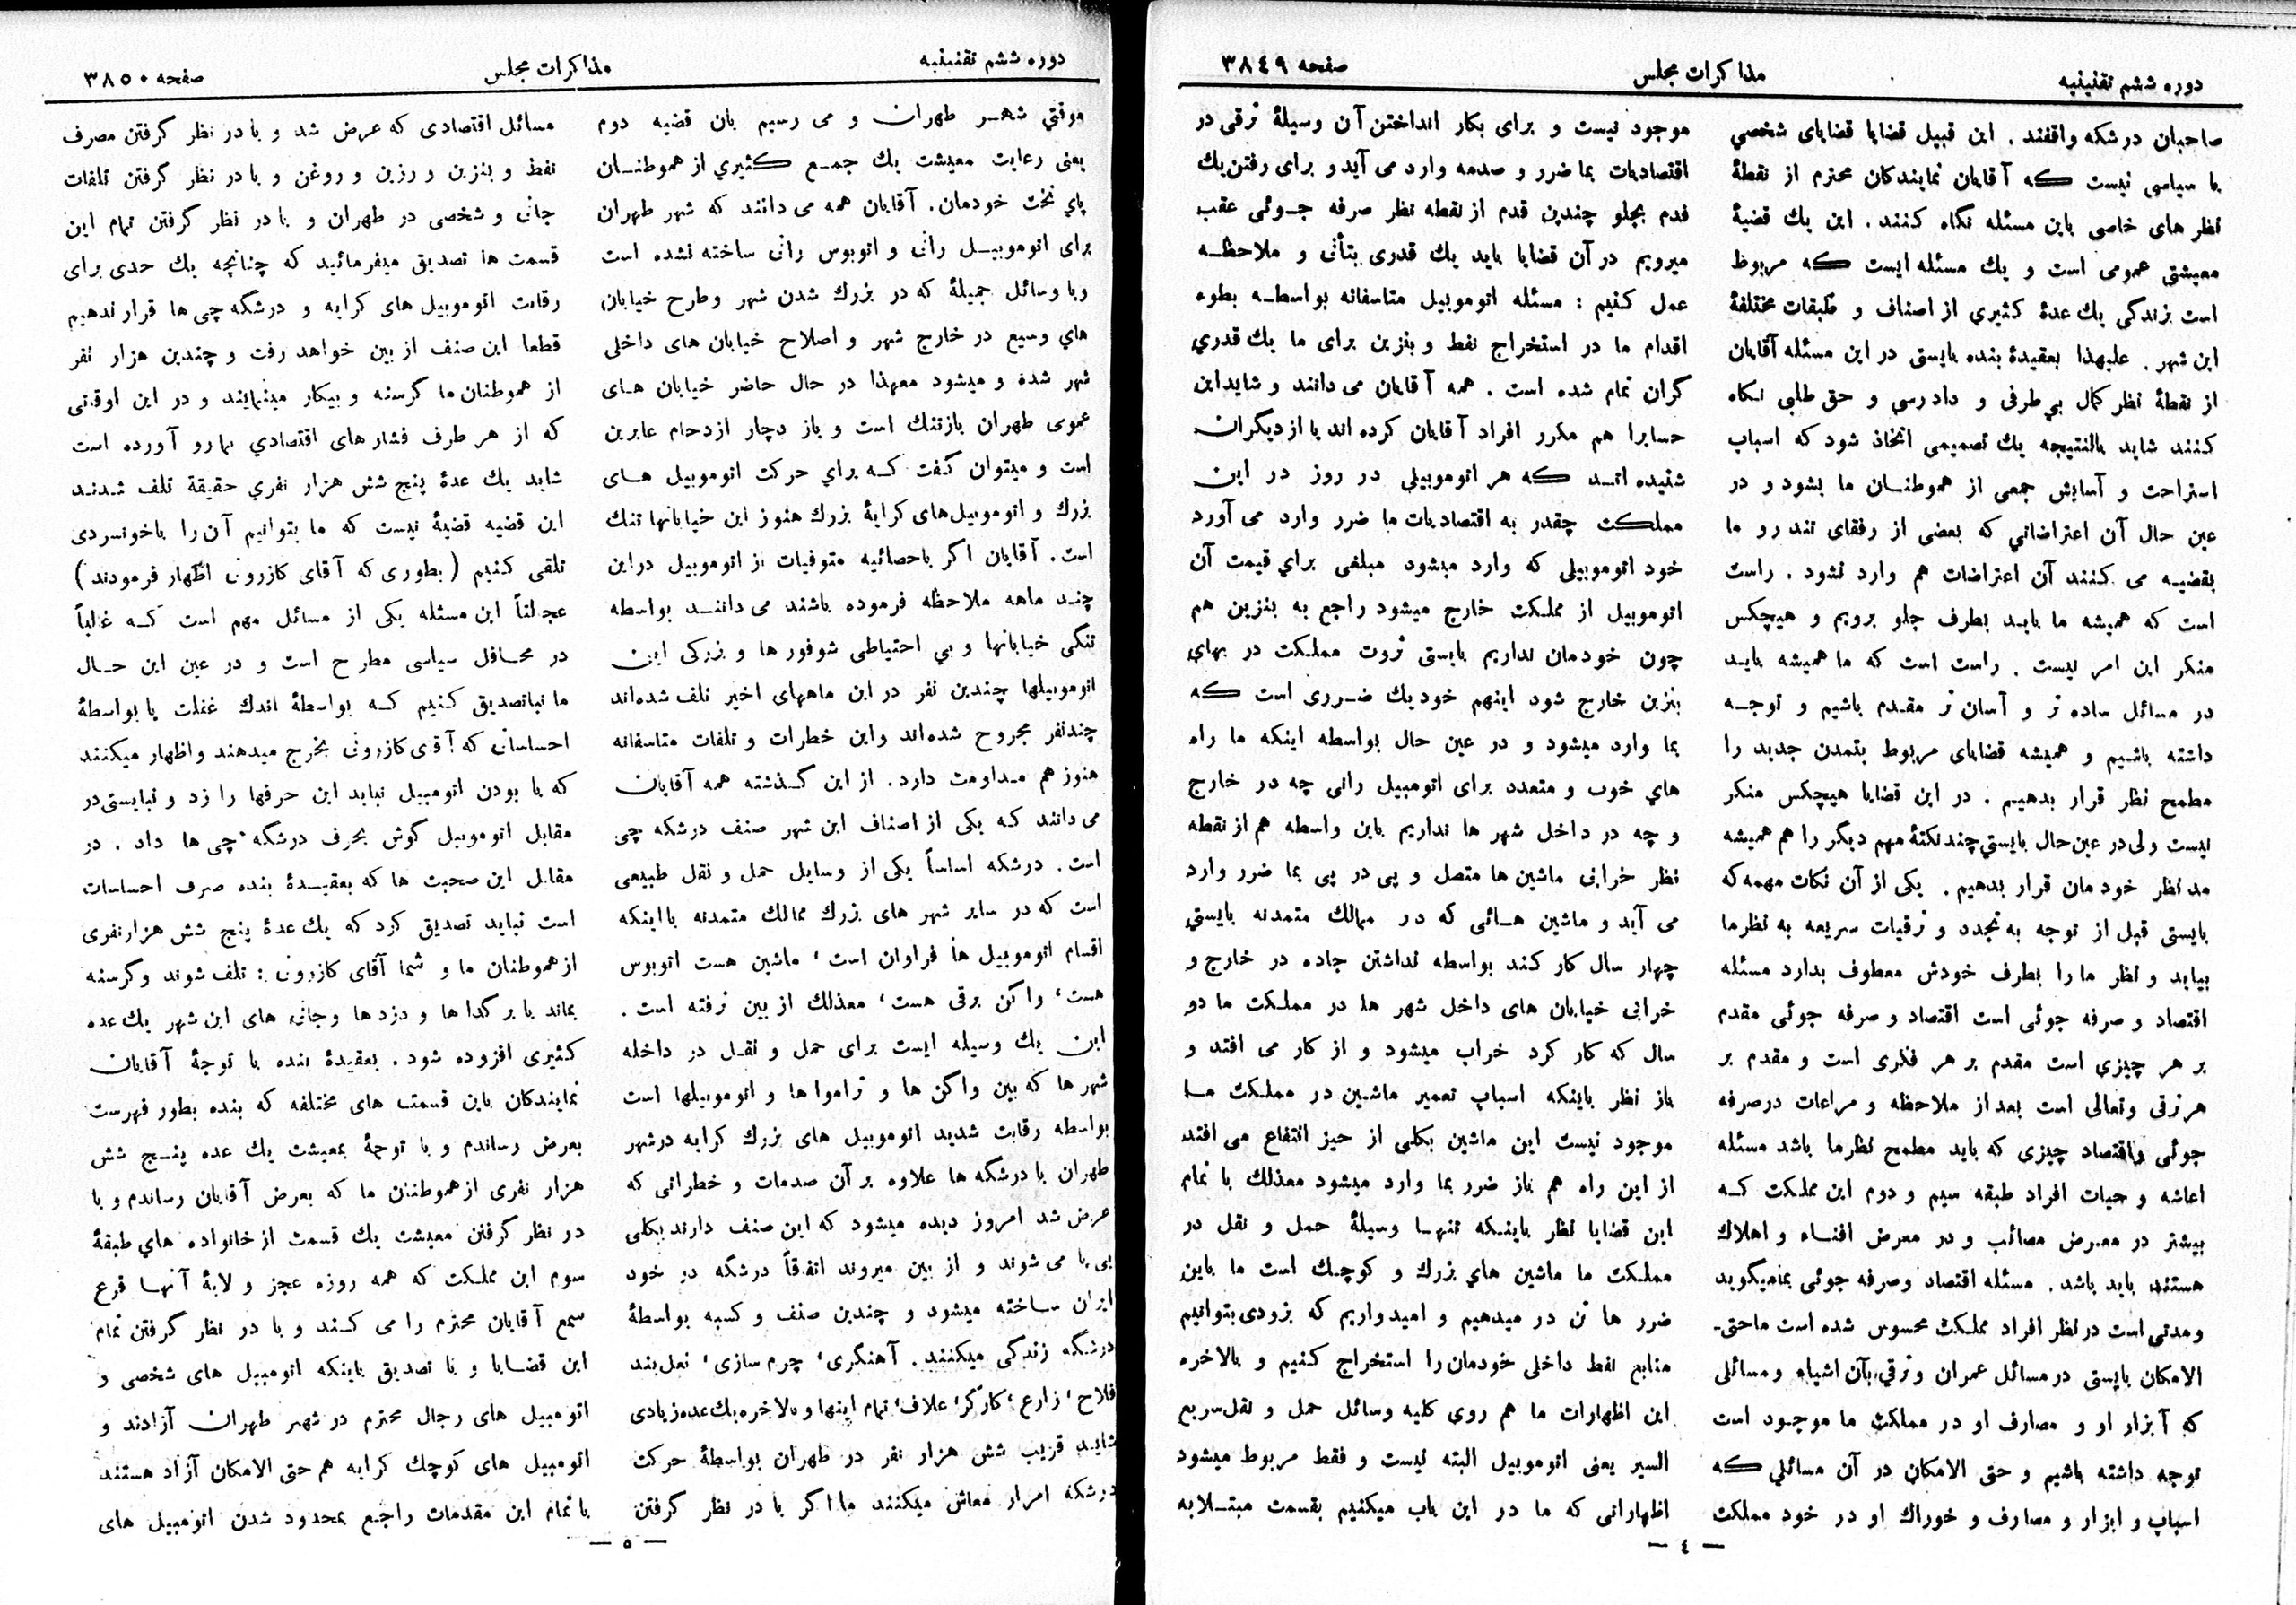 دوره ششم تقنینیه
مذاکرات مجلس
صفحه ٣٨٤٩
صاحبان درشکه واقفند . این قبیل قضایا قضایای شخصي
یا سیاسی نیست که آقایان نمایندکان محترم از نقطهٔ
نظر های خاصی باین مسئله نکاه کنند . این یك قضیهٔ
معیشتی عمومی است و یك مسئله ایست که مربوط
است بزندکی یك عدهٔ کثیري از اصناف و طبقات مختلفهٔ
این شهر . علیهذا بعقیدهٔ بنده بایستی در این مسئله آقایان
از نقطهٔ نظر کمال بي طرفی و دادرسی و حق طلبی نکاه
کنند شاید بالنتیجه یك تصمیمی اتخاذ شود که اسباب
استراحت و آسایش جمعی از هموطنان ما بشود و در
عین حال آن اعتراضاتي که بعضی از رفقای تند رو ما
بقضیه می کنند آن اعتراضات هم وارد نشود . راست
است که همیشه ما باید بطرف جلو برویم و هیچکس
منکر این امر نیست . راست است که ما همیشه باید
در مسائل ساده تر و آسان تر مقدم باشیم و توجه
داشته باشیم و همیشه قضایای مربوط بتمدن جدید را
مطمح نظر قرار بدهیم . در این قضایا هیچکس منکر
نیست ولی در عین حال بایستي چند نکتهٔ مهم دیگر را هم همیشه
مد نظر خودمان قرار بدهیم . یکی از آن نکات مهمه که
بایستی قبل از توجه به تجدد و ترقیات سریعه به نظر ما
بیاید و نظر ما را بطرف خودش معطوف بدارد مسئله
اقتصاد و صرفه جوئی است اقتصاد و صرفه جوئی مقدم
بر هر چیزي است مقدم بر هر فکری است و مقدم بر
هر ترقی و تعالی است بعد از ملاحظه و مراعات در صرفه
جوئی و اقتصاد چیزی که باید مطمح نظر ما باشد مسئله
اعاشه و حیات افراد طبقه سیم و دوم این مملکت که
بیشتر در معرض مصائب و در معرض افناء و اهلاك
هستند باید باشد . مسئله اقتصاد و صرفه جوئی بما میگوید
و مدتی است در نظر افراد مملکت محسوس شده است ما حتی-
الامکان بایستی در مسائل عمران و ترقي، بآن اشیاء و مسائلی
که آبزار او و مصارف او در مملکت ما موجود است
توجه داشته باشیم و حتی الامکان در آن مسائلي که
اسباب و ابزار و مصارف و خوراك او در خود مملکت
موجود نیست و برای بکار انداختن آن وسیلهٔ ترقی در
اقتصادیات بما ضرر و صدمه وارد می آید و برای رفتن یك
قدم بجلو چندین قدم از نقطه نظر صرفه جوئی عقب
میرویم در آن قضایا باید یك قدری بتأنی و ملاحظه
عمل کنیم : مسئله اتوموبیل متاسفانه بواسطه بطوء
اقدام ما در استخراج نفط و بنزین برای ما یك قدري
کران تمام شده است . همه آقایان می دانند و شاید این
حسابرا هم مکرر افراد آقایان کرده اند یا از دیگران
شنیده اند که هر اتوموبیلی در روز در این
مملکت چقدر به اقتصادیات ما ضرر وارد می آورد
خود اتوموبیلی که وارد میشود مبلغی براي قیمت آن
اتوموبیل از مملکت خارج میشود راجع به بنزین هم
چون خودمان نداریم بایستی ثروت مملکت در بهاي
بنزین خارج شود اینهم خود یك ضرری است که
بما وارد میشود و در عین حال بواسطه اینکه ما راه
هاي خوب و متعدد برای اتومبیل رانی چه در خارج
و چه در داخل شهر ها نداریم باین واسطه هم از نقطه
نظر خرابی ماشین ها متصل و پی در پی بما ضرر وارد
می آید و ماشین هائی که در ممالك متمدنه بایستي
چهار سال کار کند بواسطه نداشتن جاده در خارج و
خرابی خیابان های داخل شهر ها در مملکت ما دو
سال که کار کرد خراب میشود و از کار می افتد و
باز نظر باینکه اسباب تعمیر ماشین در مملکت ما
موجود نیست این ماشین بکلی از حیز انتفاع می افتد
از این راه هم باز ضرر بما وارد میشود معذلك با تمام
این قضایا نظر باینکه تنها وسیلهٔ حمل و نقل در
مملکت ما ماشین هاي بزرك و کوچك است ما باین
ضرر ها تن در میدهیم و امیدواریم که بزودی بتوانیم
منابع نفط داخلی خودمان را استخراج کنیم و بالاخره
این اظهارات ما هم روی کلیه وسائل حمل و نقل سریع
السیر یعنی اتوموبیل البته نیست و فقط مربوط میشود
اظهاراتی که ما در این باب میکنیم بقسمت مبتلابه
— ٤ —
دوره ششم تقنینیه
مذاکرات مجلس
صفحه ٣٨٥٠
موقتي شهر طهران و می رسیم بان قضیه دوم
یعنی رعایت معیشت یك جمع کثیري از هموطنان
پاي تخت خودمان . آقایان همه می دانند که شهر طهران
برای اتوموبیل رانی و اتوبوس رانی ساخته نشده است
وبا وسائل جمیلهٔ که در بزرك شدن شهر وطرح خیابان
هاي وسیع در خارج شهر و اصلاح خیابان های داخلی
شهر شده و میشود معهذا در حال حاضر خیابان های
عموی طهران باز تنك است و باز دچار ازدحام عابرین
است و میتوان گفت که براي حرکت اتوموبیل های
بزرك و اتوموبیل های کرایهٔ بزرك هنوز این خیابانها تنك
است . آقایان اکر باحصائیه متوفیات از اتوموبیل در این
چند ماهه ملاحظه فرموده باشند می دانند بواسطه
تنگی خیابانها و بي احتیاطی شوفور ها و بزرکی این
اتوموبیلها چندین نفر در این ماههای اخیر تلف شده اند
چند نفر مجروح شده اند واین خطرات و تلفات متاسفانه
هنوز هم مداومت دارد . از این گذشته همه آقایان
می دانند که یکی از اصناف این شهر صنف درشکه چی
است . درشکه اساساً یکی از وسایل حمل و نقل طبیعی
است که در سایر شهر های بزرك ممالك متمدنه با اینکه
اقسام اتوموبیل ها فراوان است ، ماشین هست اتوبوس
هست ، واکن برقی هست ، معذلك از بین نرفته است .
این یك وسیله ایست برای حمل و نقل در داخله
شهر ها که بین واکن ها و تراموا ها و اتوموبیلها است
بواسطه رقابت شدید اتوموبیل های بزرك کرایه در شهر
طهران با درشکه ها علاوه بر آن صدمات و خطراتی که
عرض شد امروز دیده میشود که این صنف دارند بکلی
بی پا می شوند و از بین میروند اتفاقاً درشکه در خود
ایران ساخته میشود و چندین صنف و کسبه بواسطهٔ
درشکه زندگی میکنند . آهنگری ، چرم سازی ، نعل بند
فلاح ، زارع ، کارکر ، علاف ، تمام اینها و بالاخره یك عده زیادی
شاید قریب شش هزار نفر در طهران بواسطهٔ حرکت
درشکه امرار معاش میکنند ما اکر با در نظر گرفتن
مسائل اقتصادی که عرض شد و با در نظر گرفتن مصرف
نفط و بنزین و رزین و روغن و با در نظر گرفتن تلفات
جانی و شخصی در طهران و با در نظر گرفتن تمام این
قسمت ها تصدیق میفرمائید که چنانچه یك حدی برای
رقابت اتوموبیل های کرایه و درشگه چی ها قرار ندهیم
قطعا این صنف از بین خواهد رفت و چندین هزار نفر
از هموطنان ما گرسنه و بیکار مینمایند و در این اوقاتی
که از هر طرف فشار های اقتصادي بما رو آورده است
شاید یك عدهٔ پنج شش هزار نفري حقیقة تلف شدند
این قضیه قضیهٔ نیست که ما بتوانیم آن را باخونسردی
تلقی کنیم ( بطوری که آقای کازرونی اظهار فرمودند )
عجالتاً این مسئله یکی از مسائل مهم است که غالباً
در محافل سیاسی مطرح است و در عین این حال
ما نباتصدیق کنیم که بواسطهٔ اندك غفلت یا بواسطهٔ
احساساتی که آقای کازرونی بخرج میدهند واظهار میکنند
که با بودن اتومبیل نباید این حرفها را زد و نبایستی در
مقابل اتوموبیل گوش بحرف درشگه چی ها داد . در
مقابل این صحبت ها که بعقیدهٔ بنده صرف احساسات
است نباید تصدیق کرد که یك عدهٔ پنج شش هزار نفری
از هموطنان ما و شما آقای کازرونی : تلف شوند و گرسنه
بماند یا بر گدا ها و دزد ها و جانی های این شهر یك عده
کثیری افزوده شود . بعقیدهٔ بنده با توجهٔ آقایان
نمایندکان باین قسمت های مختلفه که بنده بطور فهرست
بعرض رساندم و با توجهٔ بمعیشت یك عده پنج شش
هزار نفری از هموطنان ما که بعرض آقایان رساندم و با
در نظر گرفتن معیشت یك قسمت از خانواده هاي طبقهٔ
سوم این مملکت که همه روزه عجز و لابهٔ آنها قرع
سمع آقایان محترم را می کند و با در نظر گرفتن تمام
این قضایا و با تصدیق باینکه اتومبیل های شخصی و
اتومبیل های رجال محترم در شهر طهران آزادند و
اتومبیل های کوچك کرایه هم حتی الامکان آزاد هستند
با تمام این مقدمات راجع بمحدود شدن اتومبیل های
— ٥ —